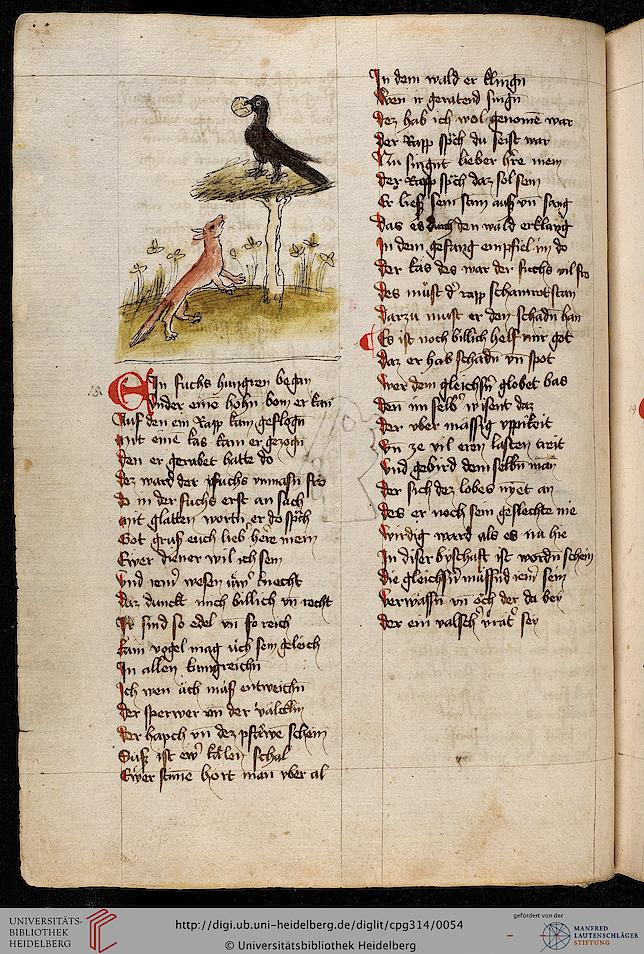 18.
Ein fuchs hungren began
Vnder eine hohn bom er kan
Auf den ein Rapp kam geflogn
mit eine kas kam er gezogn
den er gerabet hatte do
dez ward der fuchs vnmasn fro
do in der fuchs erst an sach
mit glatten wortn er do spch
Got grüß euch lieb here mein
Ewer diener wil ich sein
vnd iemr wesen uwr knecht
daz dunckt mich billich vn recht
Ir sind so edel vn so reich
kain vogel mag uch sein geleich
In allen kungreichn
Ich wen uch muß entweichn
der sperwer vn der valcklin
der hapch vn dez pfawe schein
Suß ist ewr kelen schal
Ewer stime hort man vber al
In dem wald er klingn
Wen ir geratend singn
dez hab ich wol genome war
der Rapp spch du seist war
Nu singnt lieber hre mein
der Rapp spch daz sol sein
Er ließ sein stim auß vn sang
das es durch den wald erklang
In dem gesang empfiel im do
der käs des war der fuchs vil fro
des must der rapp schamrot stan
darzu must er den schadn han
Es ist noch billich helf mir got
daz er hab schadn vn spot
wer dem gleichsnr globet bas
den im selbr wisent daz
der vber mässig vppikeit
vn ze vil eren lasten treit
vnd gebird dem selbn man
der sich dez lobes nyet an
des er noch sein geslechte nie
wirdig ward als es nu hie
In diser byschaft ist wordn schein
die gleichsnr mussnd iemr sein
verwassn vn och der da bey
der ein valschr vratr sey
UNIVERSITÄTS-
BIBLIOTHEK
HEIDELBERG
http://digi.ub.uni-heidelberg.de/diglit/cpg314/0054
© Universitätsbibliothek Heidelberg
gefördert von der
MANFRED
LAUTENSCHLÄGER
STIFTUNG